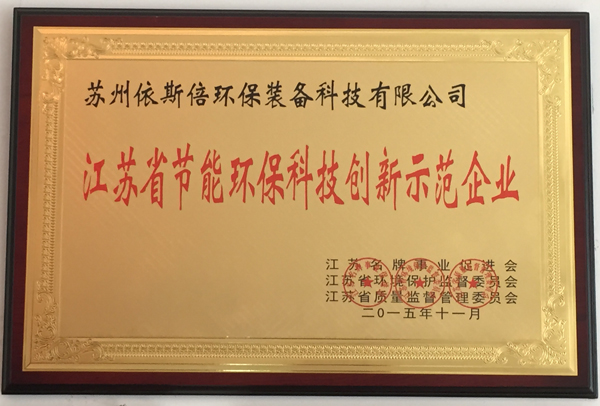 苏州依斯倍环保装备科技有限公司
江苏省节能环保科技创新示范企业
江苏名牌事业促进会
江苏省环境保护监督委员会
江苏省质量监督管理委员会
二〇一五年十一月